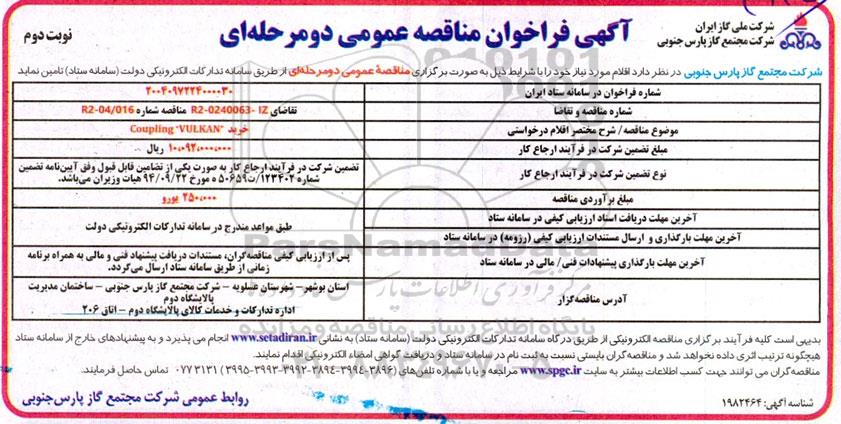 شرکت ملی گاز ایران
شرکت مجتمع گاز پارس جنوبی
آگهی فراخوان مناقصه عمومی دومرحله‌ای
نوبت دوم
شرکت مجتمع گاز پارس جنوبی در نظر دارد اقلام مورد نیاز خود را با شرایط ذیل به صورت برگزاری مناقصه عمومی دومرحله‌ای از طریق سامانه تدارکات الکترونیکی دولت (سامانه ستاد) تامین نماید
شماره فراخوان در سامانه ستاد ایران
۲۰۰۴۰۹۷۲۲۴۰۰۰۰۳۰
شماره مناقصه و تقاضا
تقاضای R2-0240063- IZ مناقصه شماره R2-04/016
موضوع مناقصه/ شرح مختصر اقلام درخواستی
خرید Coupling "VULKAN"
مبلغ تضمین شرکت در فرآیند ارجاع کار
۱۰,۰۹۲,۰۰۰,۰۰۰ ریال
نوع تضمین شرکت در فرآیند ارجاع کار
تضمین شرکت در فرآیند ارجاع کار به صورت یکی از تضامین قابل قبول وفق آیین‌نامه تضمین
شماره ۱۲۳۴۰۲/ت۵۰۶۵۹ ه مورخ ۹۴/۰۹/۲۲ هیات وزیران می‌باشد.
مبلغ برآوردی مناقصه
۲۵۰,۰۰۰ یورو
آخرین مهلت دریافت اسناد ارزیابی کیفی در سامانه ستاد
آخرین مهلت بارگذاری و ارسال مستندات ارزیابی کیفی (رزومه) در سامانه ستاد
طبق مواعد مندرج در سامانه تدارکات الکترونیکی دولت
آخرین مهلت بارگذاری پیشنهادات فنی/ مالی در سامانه ستاد
پس از ارزیابی کیفی مناقصه‌گران، مستندات دریافت پیشنهاد فنی و مالی به همراه برنامه
زمانی از طریق سامانه ستاد ارسال می‌گردد.
آدرس مناقصه‌گزار
استان بوشهر- شهرستان عسلویه - شرکت مجتمع گاز پارس جنوبی - ساختمان مدیریت
پالایشگاه دوم
اداره تدارکات و خدمات کالای پالایشگاه دوم - اتاق ۲۰۶
بدیهی است کلیه فرآیند برگزاری مناقصه الکترونیکی از طریق درگاه سامانه تدارکات الکترونیکی دولت (سامانه ستاد) به نشانی www.setadiran.ir انجام می‌پذیرد و به پیشنهادهای خارج از سامانه ستاد
هیچگونه ترتیب اثری داده نخواهد شد و مناقصه‌گران بایستی نسبت به ثبت نام در سامانه ستاد و دریافت گواهی امضاء الکترونیکی اقدام نمایند.
مناقصه‌گران می‌توانند جهت کسب اطلاعات بیشتر به سایت www.spgc.ir مراجعه و یا با شماره تلفن‌های (۳۸۹۶-۳۹۹۴-۳۸۹۴-۳۹۹۲-۳۹۹۳-۳۹۹۵) ۰۷۷۳۱۳۱ تماس حاصل فرمایند.
شناسه آگهی: ۱۹۸۲۴۶۴
روابط عمومی شرکت مجتمع گاز پارس جنوبی
ParsNamadData
مرکز فرآوری اطلاعات پارس نماد داده ها
پایگاه اطلاع رسانی مناقصه و مزایده